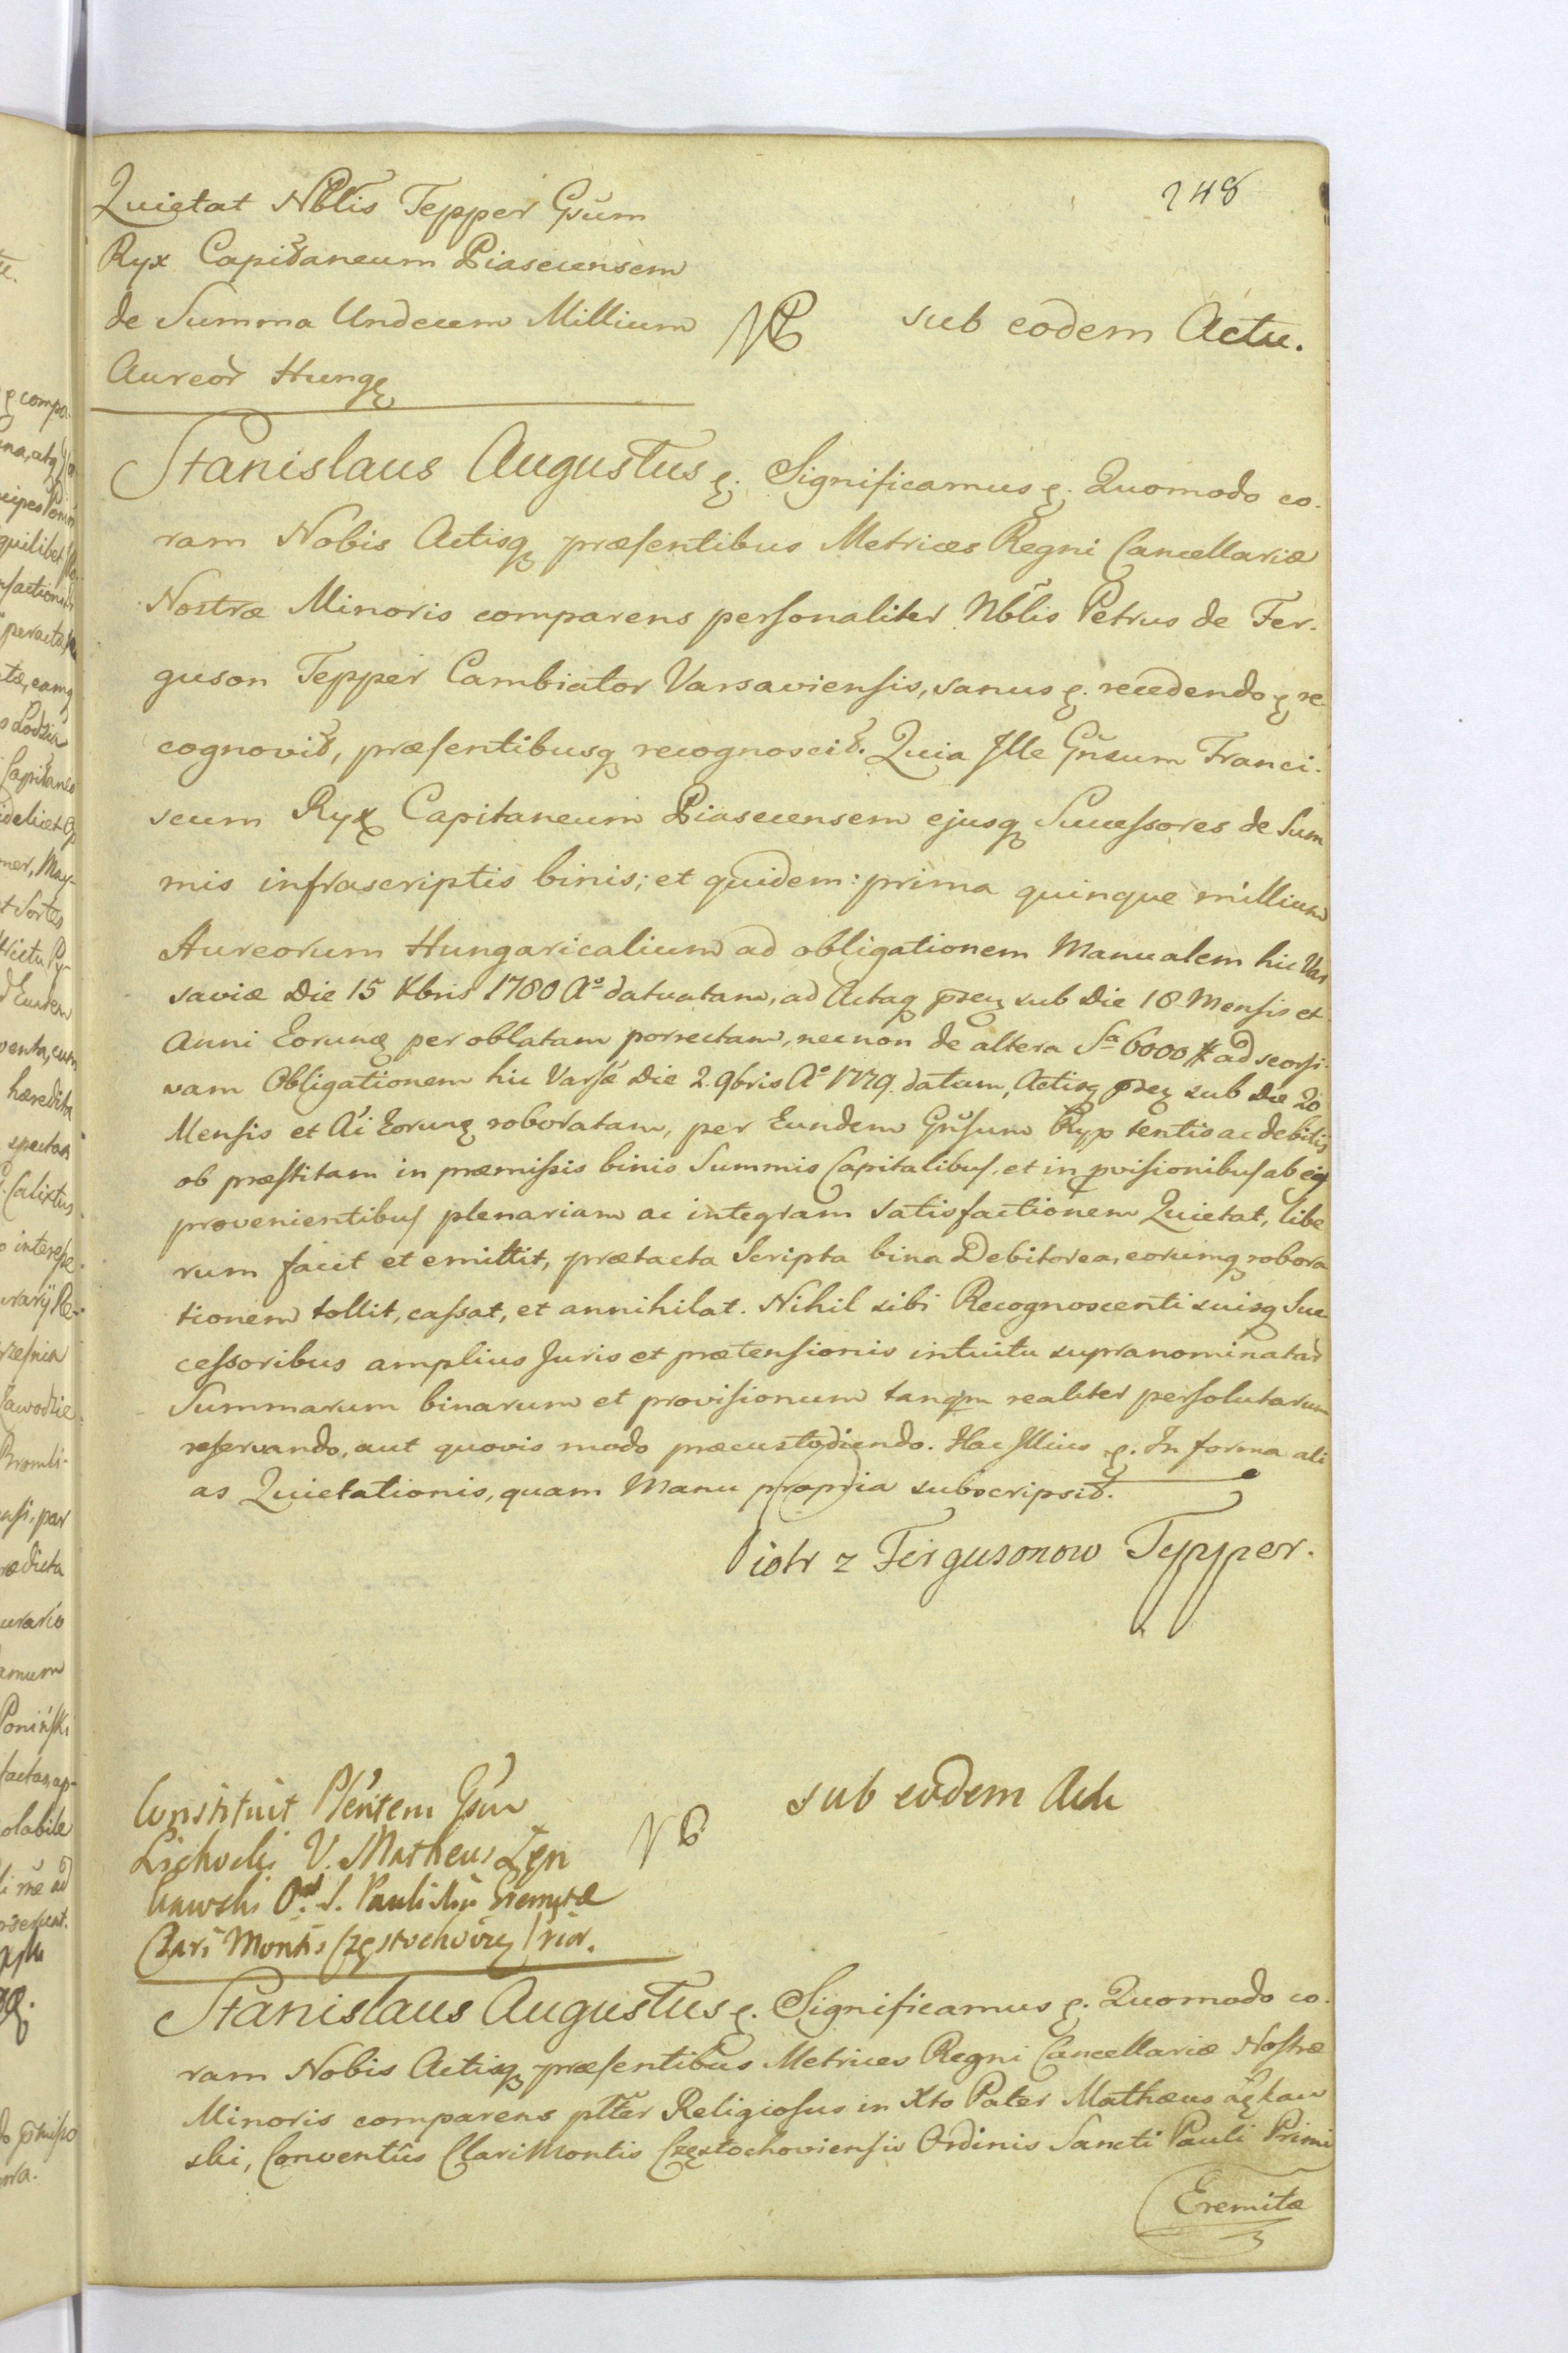 248
Quietat Nblis Tepper Gsum
Ryx Capitaneum Piasecensem
de Summa Undecem Millium
Aureor Hung
sub eodem Actu.
Stanislaus Augustus &. Significamus &. Quomodo co-
ram Nobis Actisq præsentibus Metrices Regni Cancellariæ
Nostræ Minoris comparens personaliter Nblis Petrus de Fer-
guson Tepper Cambiator Varsaviensis, sanus &. recedendo & re-
cognovit, præsentibusq recognoscit. Quia Ille Gnsum Franci-
scum Ryx Capitaneum Piasecensem ejusq Successores de Sum
mis infrascriptis binis; et quidem: prima quinque millium
Aureorum Hungaricalium ad obligationem Manualem hic Var
saviæ Die 15 Xbris 1780 Aº datuatam, ad Actaq sub Die 18 Mensis et
Anni Eorunq per oblatam porrectam, necnon de altera Sa 6000 # ad seorsi-
vam Obligationem hic Varsæ Die 2. 9bris Aº 1779. datam, Actisq sub Die 20
Mensis et Ai Eorunq roboratam, per Eundem Gnsum Ryx tentis ac debitis
ob præstitam in præmissis binis Summis Capitalibus, et in pvisionibus ab eisq
provenientibus plenariam ac integram satisfactionem Quietat, libe
rum facit et emittit, prætacta Scripta bina Debitorea, eorumq robora
tionem tollit, cassat, et annihilat. Nihil sibi Recognoscenti suisq Suc
cessoribus amplius Juris et prætensionis intuitu supranominatar
Summarum binarum et provisionum tanqm realiter persolutarum
reservando, aut quovis modo præcustodiendo. Hac Illius &. In forma ali
as Quietationis, quam Manu propria subscripsit.
Piotr z Fergusonow Tepper.
Constituit Plentem Gsum
Lichocki V. Matheus Łęn
kawski Ord. S. Pauli Imi Eremitæ
Clari Montis Częstochovien Prior.
sub eodem Actu
Stanislaus Augustus &. Significamus &. Quomodo co-
ram Nobis Actisq præsentibus Metrices Regni Cancellariæ Nostræ
Minoris comparens plter Religiosus in Xto Pater Mathæus Łękaw
ski, Conventûs Clari Montis Częstochoviensis Ordinis Sancti Pauli Primi
Eremitæ